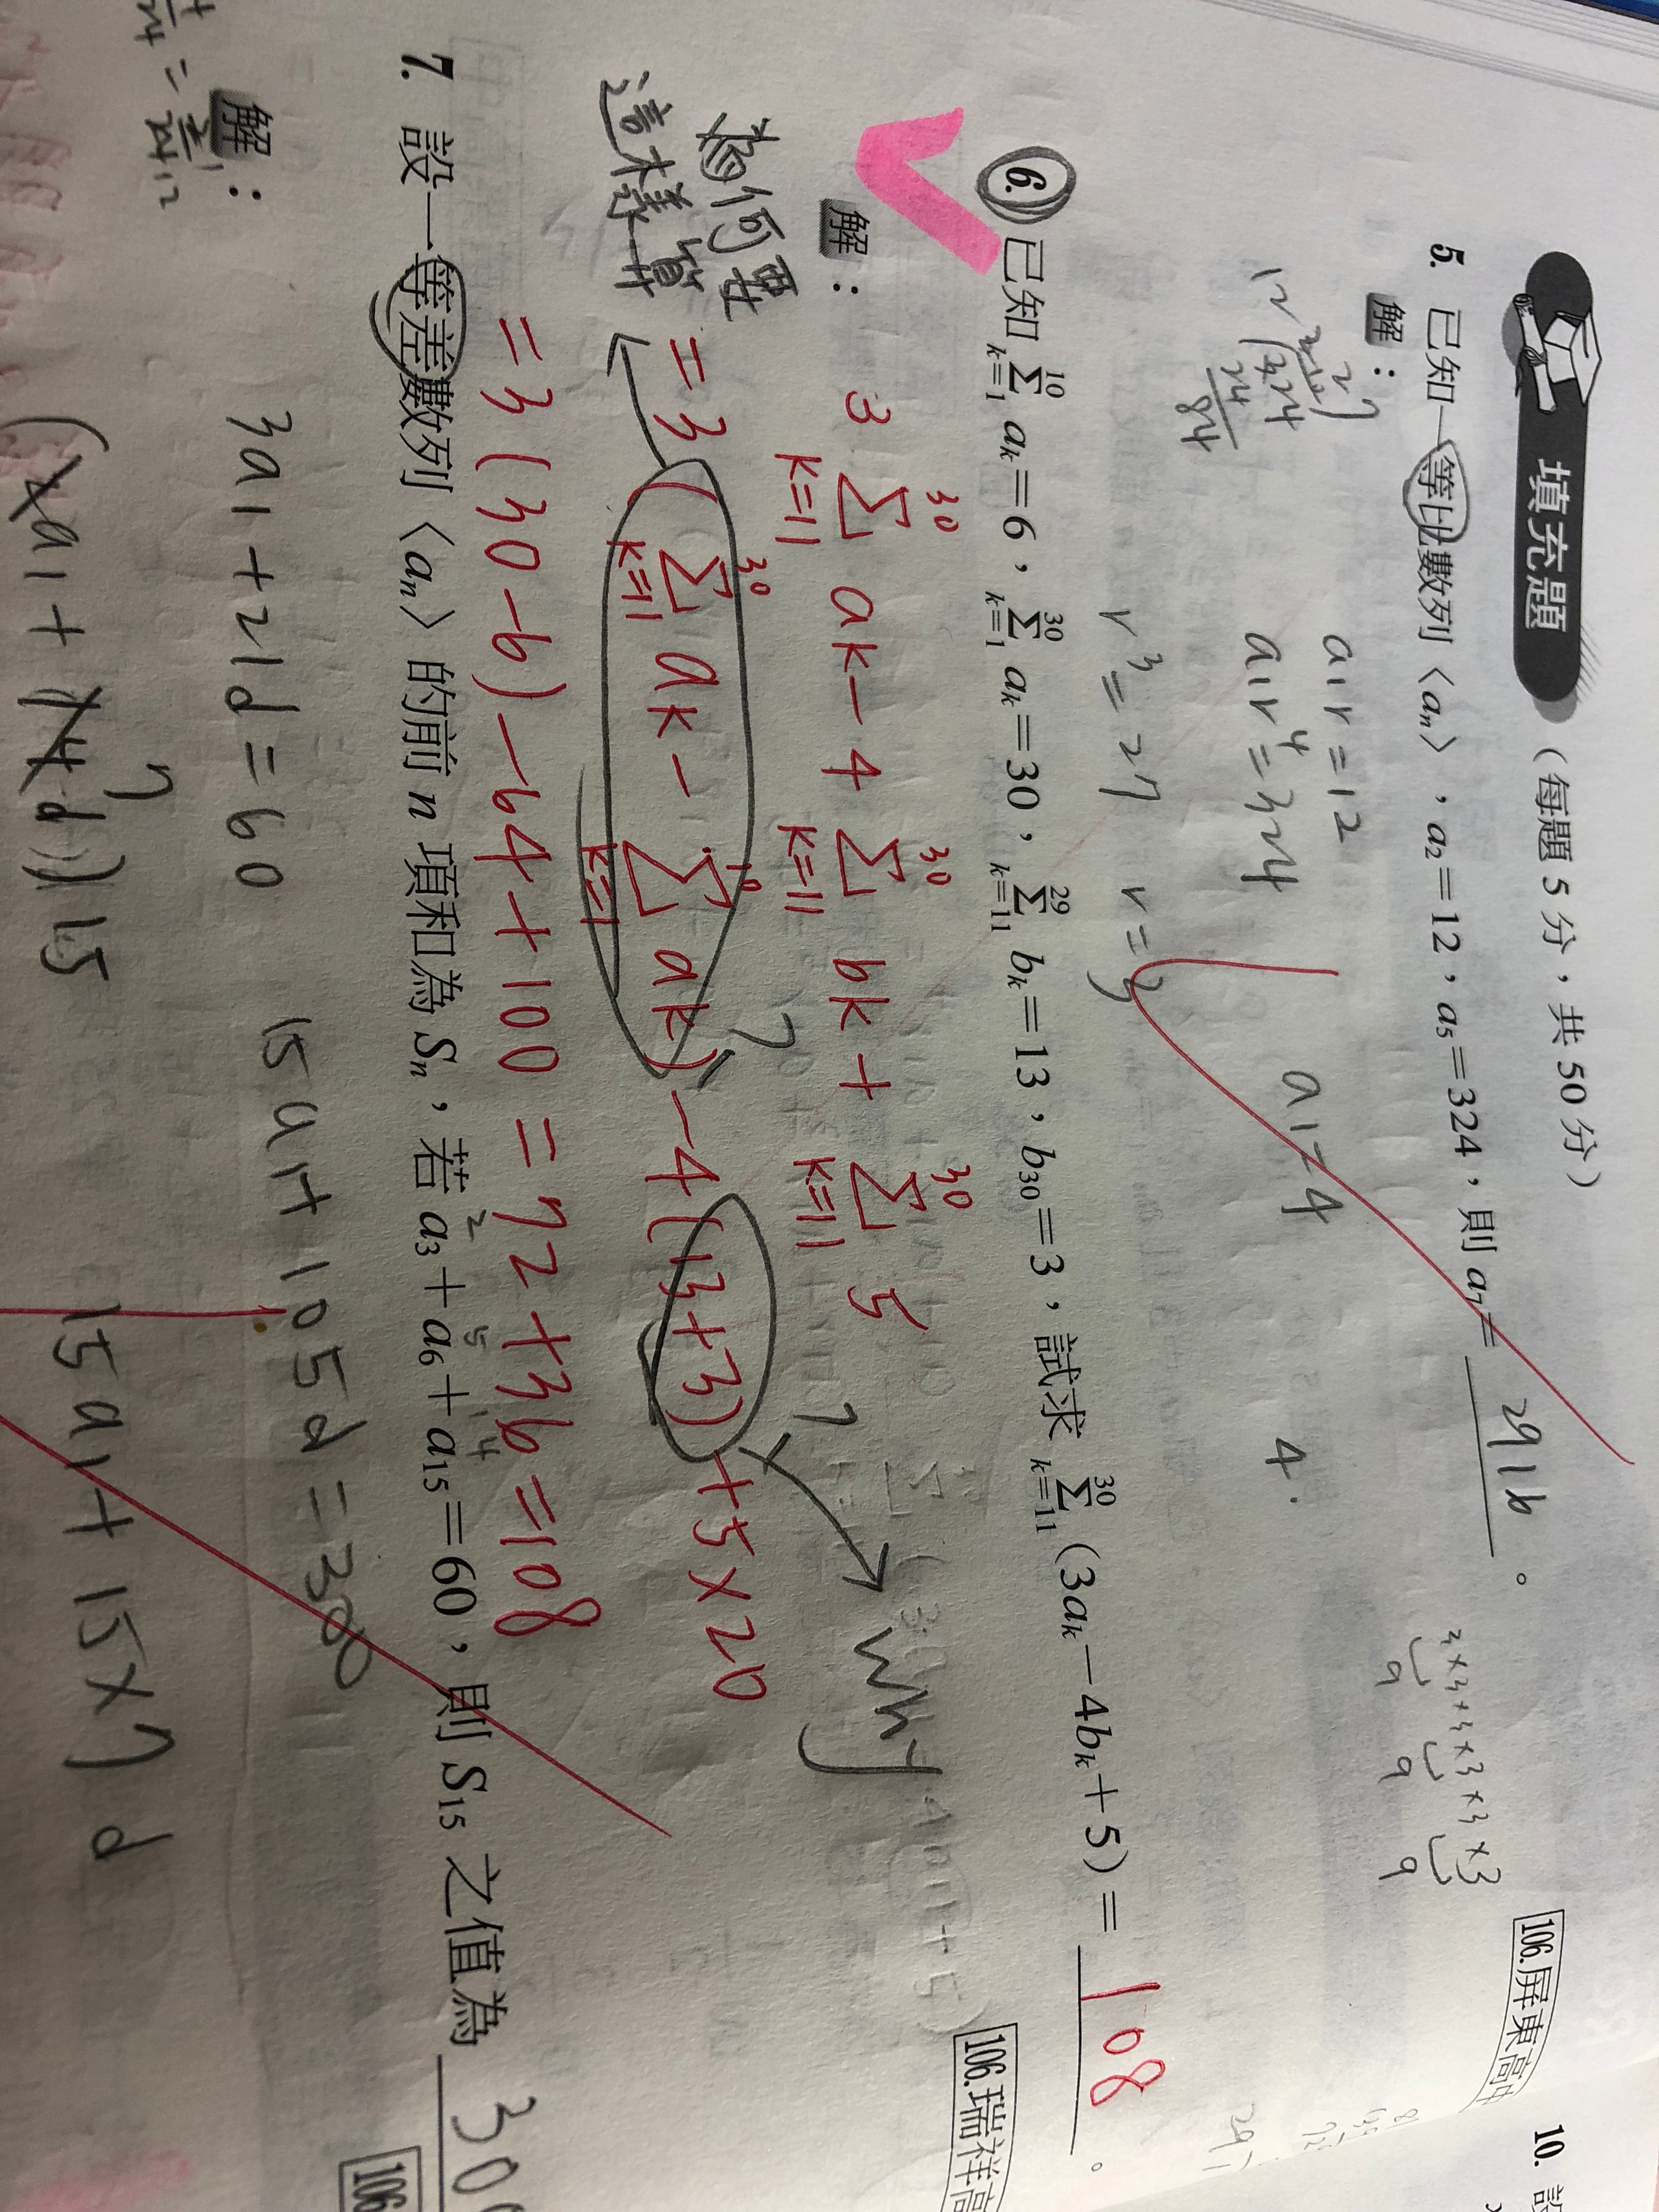 填充題 (每題 5 分,共 50 分)
5. 已知一等比數列〈aₙ〉,a₂=12,a₅=324,則 a₇= 2916 。
106.屏東高中
解:
a₁r=12
a₁r⁴=324
r³=27 r=3
a₁=4
4.
27
12)324
24
84
3×3×3×3×3×3
9 9 9
6. 已知 Σ_{k=1}^{10} aₖ=6,Σ_{k=1}^{30} aₖ=30,Σ_{k=11}^{29} bₖ=13,b₃₀=3,試求 Σ_{k=11}^{30} (3aₖ-4bₖ+5)= 108 。
106.瑞祥高
解:
3 Σ_{k=11}^{30} ak - 4 Σ_{k=11}^{30} bk + Σ_{k=11}^{30} 5
=3( Σ_{k=11}^{30} ak - Σ_{k=1}^{10} ak) -4(13+3)+5×20
=3(30-6)-64+100=72+36=108
為何要
這樣算
?
?
Why
7. 設一等差數列〈aₙ〉的前 n 項和為 Sₙ,若 a₃+a₆+a₁₅=60,則 S₁₅ 之值為 300
2 5 14
106
解:
3a₁+21d=60
15a₁+105d=300
15a₁+15×7d
10. 設